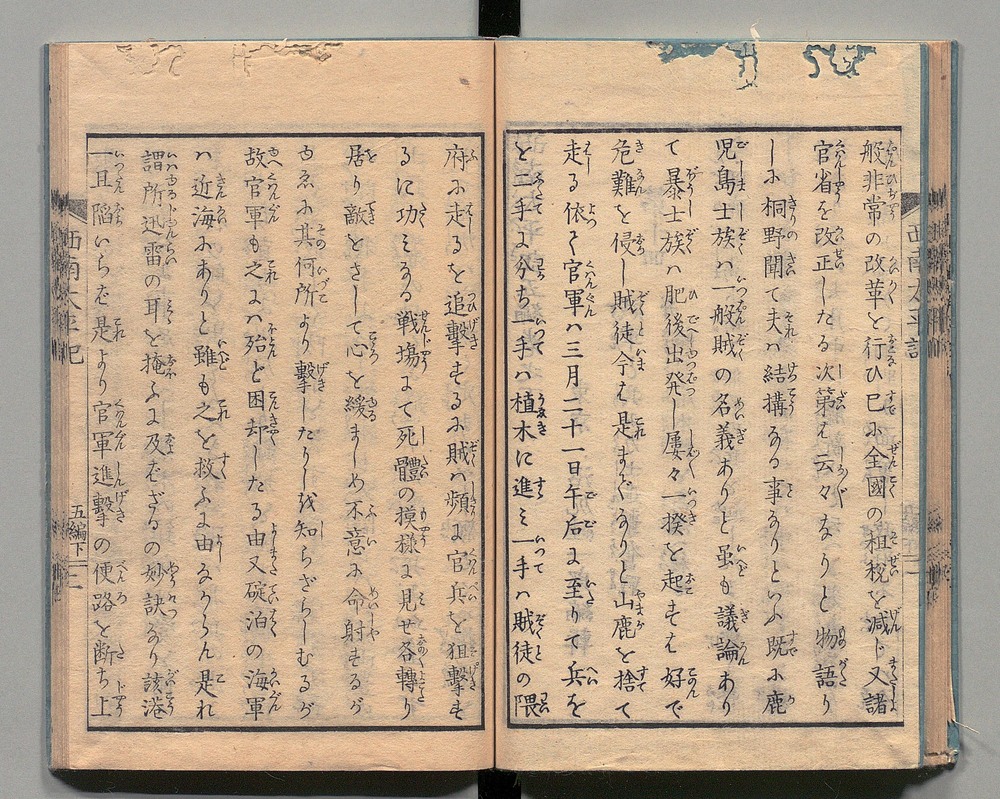 般非常の改革を行ひ已に全國の租税を減じ又諸
官省を改正したる次第は云々なりと物語り
しに桐野聞て夫ハ結構なる事なりといふ既に鹿
児島士族ハ一般賊の名義ありと虽も議論あり
て暴士族ハ肥後出発し屡々一揆を起すは好で
危難を侵し賊徒今は是までなりと山鹿を捨て
走る依て官軍ハ三月二十一日午后に至りて兵を
と二手に分ち一手ハ植木に進ミ一手ハ賊徒の隈
府に走るを追撃するに賊ハ頻に官兵を狙撃す
るに功ミなる戦塲にて死體の摸様に見せ各轉り
居り敵をさして心を緩ましめ不意に命射するが
ゆゑに其何所より撃したりしを知らざらしむるが
故官軍も之にハ殆ど困却したる由又碇泊の海軍
ハ近海にありと雖も之を救ふに由なからん是れ
謂所迅雷の耳を掩ふに及ばざるの妙訣なり該港
一且陷いらば是より官軍進撃の便路を断ち上
西南太平記
五編下
三